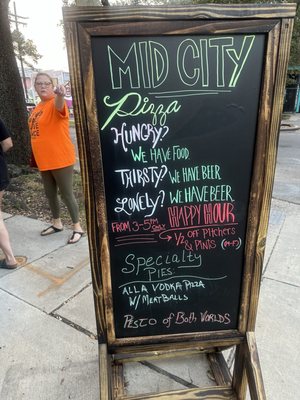 MID CITY
Pizza
HUNGRY?
WE HAVE FOOD
THIRSTY? WE HAVE BEER
LONELY? WE HAVE BEER
HAPPY HOUR
FROM 3-5PM ONLY
1/2 OFF PITCHERS
& PINTS (M-F)
Specialty
PIES:
ALLA VODKA PIZZA
W/ MEATBALLS
PESTO of Both WORLDS